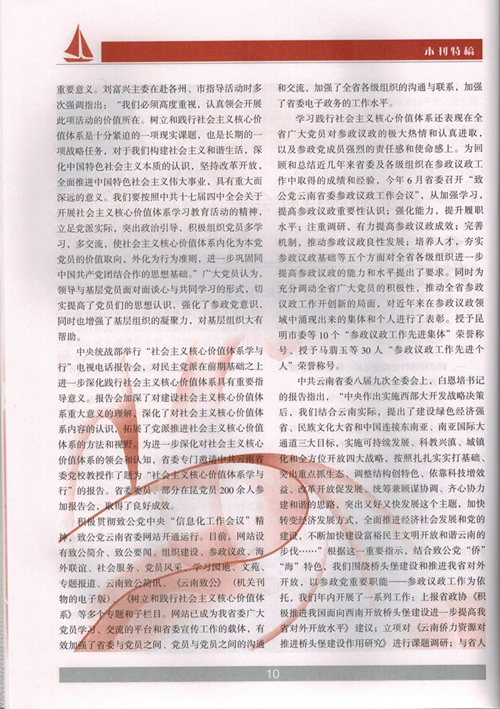 本刊特稿
重要意义。刘富兴主委在赴各州、市指导活动时多
次强调指出：“我们必须高度重视，认真领会开展
此项活动的价值所在。树立和践行社会主义核心价
值体系是十分紧迫的一项现实课题，也是长期的一
项战略任务，对于我们构建社会主义和谐生活，深
化中国特色社会主义本质的认识，坚持改革开放，
全面推进中国特色社会主义伟大事业，具有重大而
深远的意义。我们要按照中共十七届四中全会关于
开展社会主义核心价值体系学习教育活动的精神，
立足党派实际，突出政治引导，积极组织党员多学
习，多交流，使社会主义核心价值体系内化为本党
党员的价值取向，外化为行为准则，进一步巩固同
中国共产党团结合作的思想基础。”广大党员认为，
领导与基层党员面对面谈心与共同学习的形式，切
实提高了党员们的思想认识，强化了参政党意识，
同时也增强了基层组织的凝聚力，对基层组织大有
帮助。
中央统战部举行“社会主义核心价值体系学与
行”电视电话报告会，对民主党派在前期基础之上
进一步深化践行社会主义核心价值体系具有重要指
导意义。报告会加深了对建设社会主义核心价值体
系重大意义的理解，深化了对社会主义核心价值体
系内容的认识，拓展了党派推进社会主义核心价值
体系的方法和视野。为进一步深化对社会主义核心
价值体系的领会和认知，省委专门邀请中共云南省
委党校教授作了题为“社会主义核心价值体系学与
行”的报告。省委委员、部分在昆党员 200 余人参
加报告会，取得了良好成效。
积极贯彻致公党中央“信息化工作会议”精
神，致公党云南省委网站开通运行。目前，网站设
有致公简介、致公要闻、组织建设、参政议政、海
外联谊、社会服务、党员风采、学习园地、文苑、
专题报道、云南致公简讯、《云南致公》（机关刊
物的电子版）、《树立和践行社会主义核心价值体
系》等多个专题和子栏目。网站已成为我省委广大
党员学习、交流的平台和省委宣传工作的载体，有
效加强了省委与党员之间、党员与党员之间的沟通
和交流，加强了全省各级组织的沟通与联系，加强
了省委电子政务的工作水平。
学习践行社会主义核心价值体系还表现在全
省广大党员对参政议政的极大热情和认真进取，
以及参政党成员强烈的责任感和使命感上。为回
顾和总结近几年来省委及各级组织在参政议政工
作中取得的成绩和经验，今年 6 月省委召开“致
公党云南省委参政议政工作会议”，从加强学习，
提高参政议政重要性认识；强化能力，提升履职
水平；注重调研，有力提高参政议政成效；完善
机制，推动参政议政良性发展；培养人才，夯实
参政议政基础等五个方面对全省各级组织进一步
提高参政议政的能力和水平提出了要求。同时为
充分调动全省广大党员的积极性，推动全省参政
议政工作开创新的局面，对近年来在参政议政领
域中涌现出来的集体和个人进行了表彰。授予昆
明市委等 10 个“参政议政工作先进集体”荣誉称
号、授予马翡玉等 30 人“参政议政工作先进个
人”荣誉称号。
中共云南省委八届九次全委会上，白恩培书记
的报告指出，“中央作出实施西部大开发战略决策
后，我们结合云南实际，提出了建设绿色经济强
省、民族文化大省和中国连接东南亚、南亚国际大
通道三大目标，实施可持续发展、科教兴滇、城镇
化和全方位开放四大战略，按照扎扎实实打基础、
突出重点抓生态、调整结构创特色、依靠科技增效
益、改革开放促发展、统筹兼顾谋协调、齐心协力
建和谐的思路，突出又好又快发展这个主题，加快
转变经济发展方式，全面推进经济社会发展和党的
建设，不断加快建设富裕民主文明开放和谐云南的
步伐……”根据这一重要指示，结合致公党“侨”
“海”特色，我们围绕桥头堡建设和推进我省对外
开放，以参政党重要职能——参政议政工作为依
托，我们年内开展了一系列工作：上报省政协《积
极推进我国面向西南开放桥头堡建设进一步提高我
省对外开放水平》建议；立项对《云南侨力资源对
推进桥头堡建设作用研究》进行课题调研；与省人
10